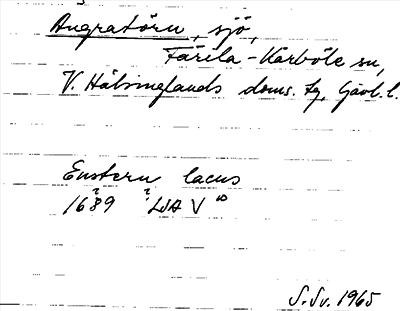 Angratörn, sjö,
Färila-Karböle sn,
V. Hälsinglands doms. tg, Gävl. l.
Enstern lacus
1689 LSA V
S. Sv. 1965